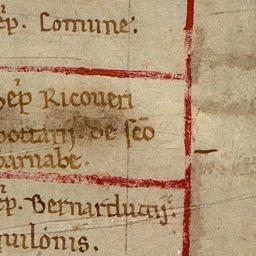 ep. Comune.
Sep Ricoueri
pottarij. de sco
barnabe.
ep. Bernarducij.
quilonis.